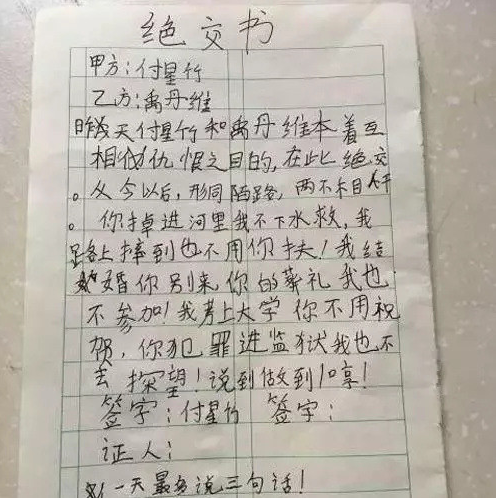 绝交书
甲方：付星竹
乙方：禹丹维
昨天付星竹和禹丹维本着互
相仇恨之目的，在此绝交
。从今以后，形同陌路，两不相干
。你掉进河里我不下水救，我
路上摔到也不用你扶！我结
婚你别来你的葬礼我也
不参加！我考上大学你不用祝
贺，你犯罪进监狱我也不
去探望！说到做到！哼！
签字：付星竹 签字：
证人：
一天最多说三句话！